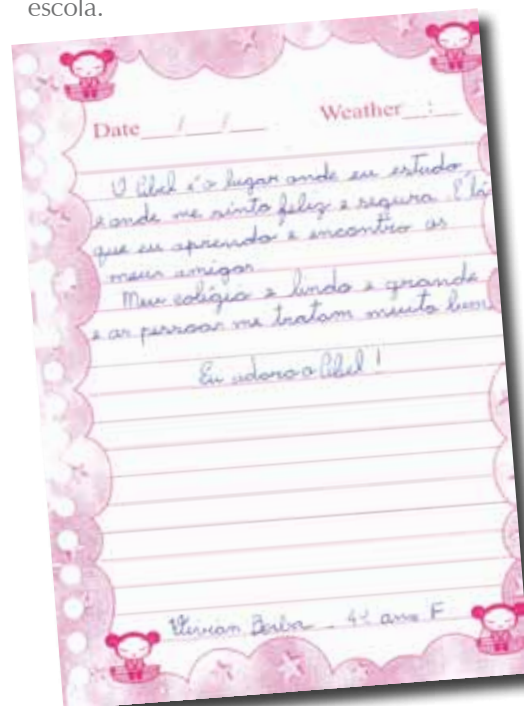 escola.
Date__/__/__ Weather__:__
O Cibel é o lugar onde eu estudo,
e onde me sinto feliz e segura. É lá
que eu aprendo e encontro os
meus amigos
Meu colégio e lindo e grande
e as pessoas me tratam muito bem
Eu adoro o Cibel!
Vivian Borba _ 4º ano F